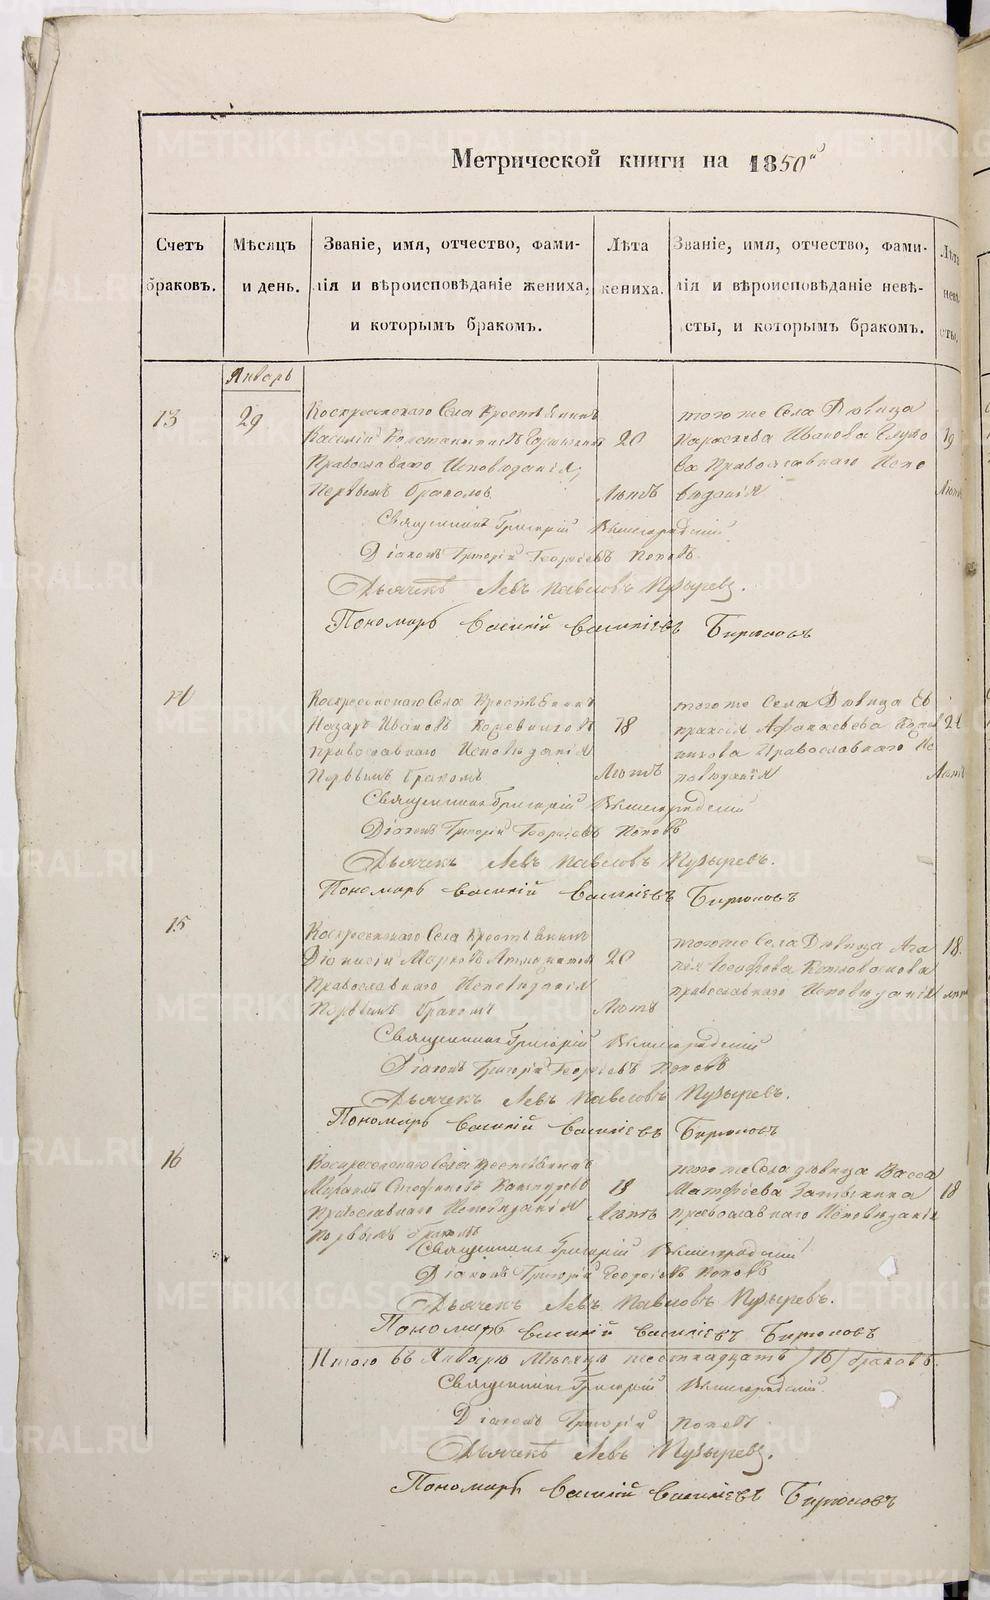 Метрической книги на 1850й
Счетъ браковъ.
Мѣсяцъ и день.
Званіе, имя, отчество, фами-
лія и вѣроисповѣданіе жениха,
и которымъ бракомъ.
Лѣта жениха.
Званіе, имя, отчество, фами-
лія и вѣроисповѣданіе невѣ-
сты, и которымъ бракомъ.
Лѣта невѣ-сты.
Январь
13
29
Воскресенскаго Села Крестьянинъ
Василій Константиновъ
Православнаго Исповѣданія,
Первымъ бракомъ
20
Лѣтъ
того же Села Дѣвица
Параскева Иванова
Православнаго Испо
вѣданія
19
Лѣтъ
Священникъ Григорій Вышеградскій
Діаконъ Григорій Георгіевъ Поповъ
Дьячекъ Левъ Павловъ Пузыревъ.
Пономарь Василій Василіевъ Бирюковъ
14
Воскресенскаго Села Крестьянинъ
Назаръ Ивановъ Кожевниковъ
православнаго Исповѣданія
Первымъ бракомъ
18
Лѣтъ
того же Села Дѣвица Ев
праксія Афанасьева
Православнаго Ис
повѣданія
21
Лѣтъ
Священникъ Григорій Вышеградскій
Діаконъ Григорій Георгіевъ Поповъ
Дьячекъ Левъ Павловъ Пузыревъ.
Пономарь Василій Василіевъ Бирюковъ
15
Воскресенскаго Села Крестьянинъ
Діонисій Марковъ
Православнаго Исповѣданія
Первымъ бракомъ
20
Лѣтъ
того же Села Дѣвица Ага
пія
православнаго Исповѣданія
18
лѣтъ
Священникъ Григорій Вышеградскій
Діаконъ Григорій Георгіевъ Поповъ
Дьячекъ Левъ Павловъ Пузыревъ.
Пономарь Василій Василіевъ Бирюковъ
16
Воскресенскаго Села Крестьянинъ
Стефановъ
Православнаго Исповѣданія
первымъ бракомъ
18
Лѣтъ
того же Села дѣвица Васса
Матфіева
православнаго Исповѣданія
18
Священникъ Григорій Вышеградскій
Діаконъ Григорій Георгіевъ Поповъ
Дьячекъ Левъ Павловъ Пузыревъ.
Пономарь Василій Василіевъ Бирюковъ
Итого въ Январѣ Мѣсяцѣ шестнадцать /16/ браковъ.
Священникъ Григорій Вышеградскій.
Діаконъ Григорій Поповъ
Дьячекъ Левъ Пузыревъ.
Пономарь Василій Василіевъ Бирюковъ
METRIKI.GASO-URAL.RU